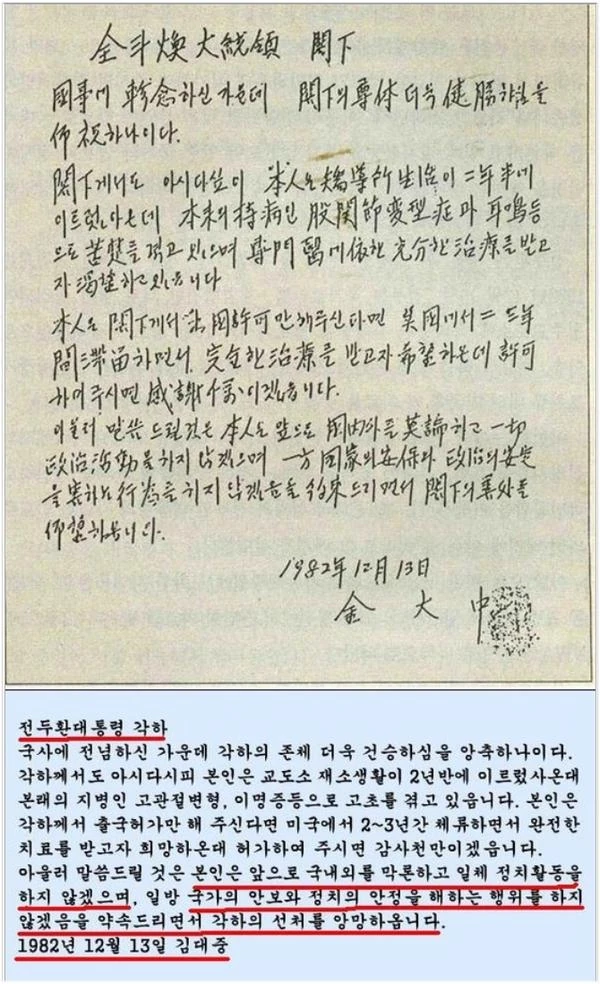 全斗煥大統領 閣下
國事에 軫念하신 가운데 閣下의 尊体 더욱 健勝하심을
仰祝하나이다.
閣下께서도 아시다싶이 本人은 矯導所 生活이 二年半에
이르렀아온데 本来의 持病인 股関節変型症과 耳鳴等
으로 苦楚를 겪고 있으며 専門醫에 依한 充分한 治療를 받고
자 渇望하고 있읍니다
本人은 閣下께서 出國許可만 해주신다면 美國에서 二三年
間 滞留하면서 完全한 治療를 받고자 希望하온데 許可
하여 주시면 感謝千萬이겠읍니다.
아울러 말씀 드릴것은 本人은 앞으로 國内外를 莫論하고 一切
政治活動을 하지 않겠으며 一方 国家의 安保와 政治의 安定
을 害하는 行為를 하지 않겠음을 約束드리면서 閣下의 善処를
仰望하옵니다.
1982年 12月 13日
金 大 中
전두환대통령 각하
국사에 전념하신 가운데 각하의 존체 더욱 건승하심을 앙축하나이다.
각하께서도 아시다시피 본인은 교도소 재소생활이 2년반에 이르렀사온대
본래의 지병인 고관절변형, 이명증등으로 고초를 겪고 있읍니다. 본인은
각하께서 출국허가만 해 주신다면 미국에서 2~3년간 체류하면서 완전한
치료를 받고자 희망하온대 허가하여 주시면 감사천만이겠읍니다.
아울러 말씀드릴 것은 본인은 앞으로 국내외를 막론하고 일체 정치활동을
하지 않겠으며, 일방 국가의 안보와 정치의 안정을 해하는 행위를 하지
않겠음을 약속드리면서 각하의 선처를 앙망하옵니다.
1982년 12월 13일 김대중